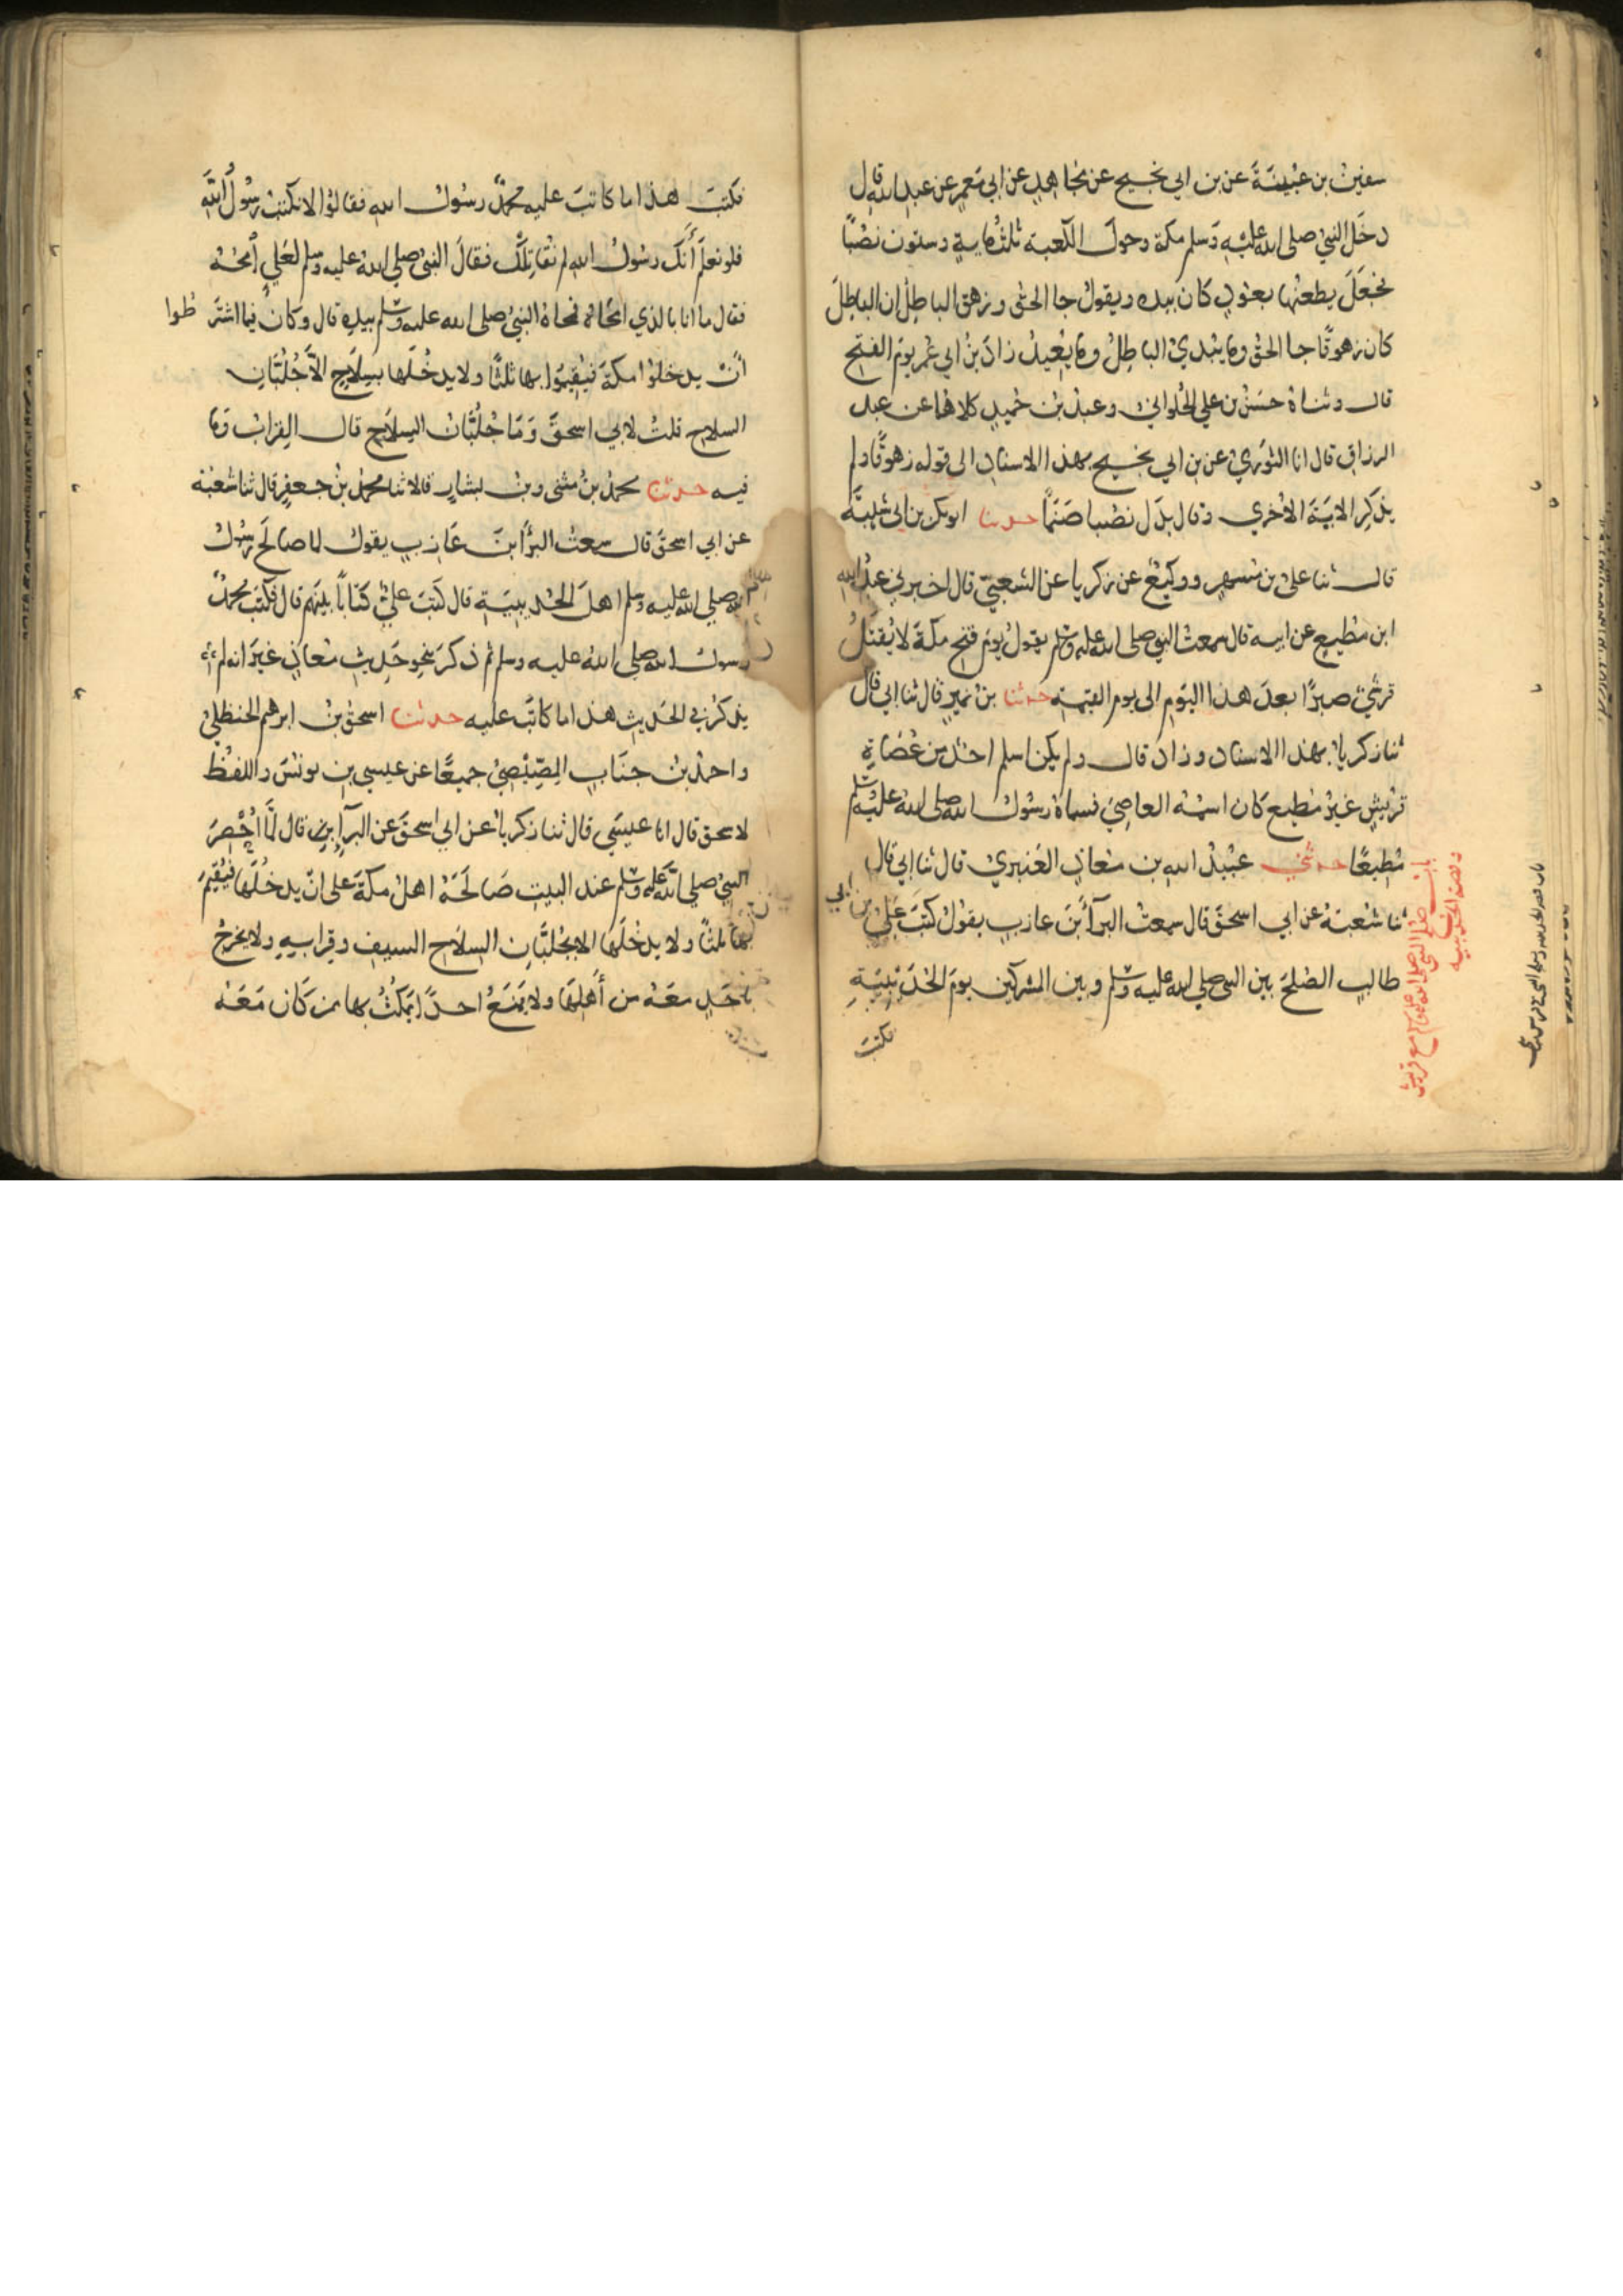 سفين بن عيينة عن بن ابي نجيح عن مجاهد عن ابي معمر عن عبد الله قال
دخل النبي صلى الله عليه وسلم مكة وحول الكعبة ثلثماية وستون نصبا
فجعل يطعنها بعود كان بيده ويقول جا الحق وزهق الباطل ان الباطل
كان زهوقا جا الحق وما يبدئ الباطل وما يعيد زاد بن ابي عمر يوم الفتح
قال وثناه حسن بن علي الحلواني وعبد بن حميد كلاهما عن عبد
الرزاق قال انا الثوري عن بن ابي نجيح بهذا الاسناد الى قوله زهوقا ولم
يذكر الاية الاخري وقال بدل نصبا صنما حدثنا ابو بكر بن ابي شيبة
قال ثنا علي بن مسهر ووكيع عن زكريا عن الشعبي قال اخبرني عبد الله
ابن مطيع عن ابيه قال سمعت النبي صلى الله عليه وسلم يقول يوم فتح مكة لا يقتل
قرشي صبرا بعد هذا اليوم الى يوم القيمة حدثنا بن نمير قال ثنا ابي قال
ثنا زكريا بهذا الاسناد وزاد قال ولم يكن اسلم احد من عصاة
قريش غير مطيع كان اسمه العاصي فسماه رسول الله صلى الله عليه وسلم
مطيعا حدثني عبيد الله بن معاذ العنبري قال ثنا ابي قال
ثنا شعبة عن ابي اسحق قال سمعت البرآ بن عازب يقول كتب علي بن ابي
طالب الصلح بين النبي صلى الله عليه وسلم وبين المشركين يوم الحديبية
فكتب
باب صلح النبي صلى الله عليه وسلم مع قريش
وقصة الحديبية
فكتب هذا ما كاتب عليه محمد رسول الله فقالوا لا تكتب رسول الله
فلو نعلم أنك رسول الله لم نقاتلك فقال النبي صلى الله عليه وسلم لعلي امحه
فقال ما انا بالذي امحاه فمحاه النبي صلى الله عليه وسلم بيده قال وكان فيما اشترطوا
أن يدخلوا مكة فيقيموا بها ثلثا ولا يدخلها بسلاح الا جلبان
السلاح قلت لابي اسحق وما جلبان السلاح قال القراب وما
فيه حدثنا محمد بن مثنى وبن بشار قالا ثنا محمد بن جعفر قال ثنا شعبة
عن ابي اسحق قال سمعت البرأ ابن عازب يقول لما صالح رسول
الله صلى الله عليه وسلم اهل الحديبية قال كتب علي كتابا بينهم قال فكتب محمد
رسول الله صلى الله عليه وسلم ثم ذكر نحو حديث معاذ غير انه لم
يذكر في الحديث هذا ما كاتب عليه حدثنا اسحق بن ابرهيم الحنظلي
واحمد بن جناب المصيصي جميعا عن عيسي بن يونس واللفظ
لاسحق قال انا عيسي قال ثنا زكريا عن ابي اسحق عن البرآ قال لما أحصر
النبي صلى الله عليه وسلم عند البيت صالحه اهل مكة على ان يدخلها فيقيم
بها ثلثا ولا يدخلها الا بجلبان السلاح السيف وقرابه ولا يخرج
باحد معه من أهلها ولا يمنع احدا يمكث بها ممن كان معه